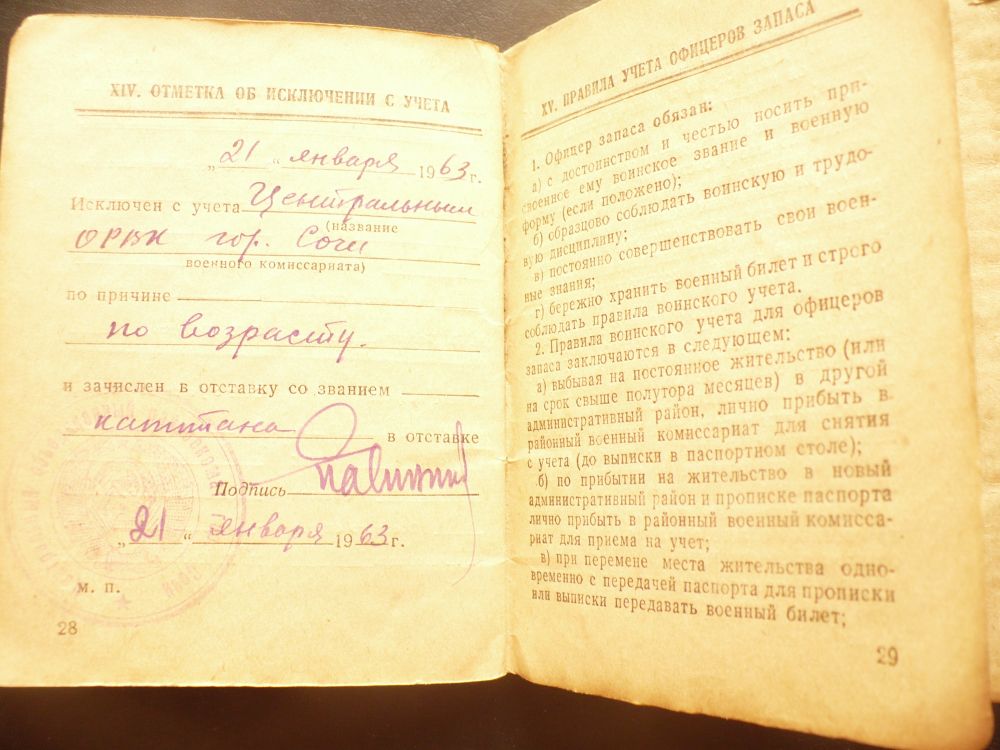 XIV. ОТМЕТКА ОБ ИСКЛЮЧЕНИИ С УЧЕТА
„21“ января 1963г.
Исключен с учета Центральным
(название
ОРВК гор. Сочи
военного комиссариата)
по причине
по возрасту.
и зачислен в отставку со званием
капитана в отставке
Подпись
„21“ января 1963г.
м. п.
28
XV. ПРАВИЛА УЧЕТА ОФИЦЕРОВ ЗАПАСА
1. Офицер запаса обязан:
а) с достоинством и честью носить при-
своенное ему воинское звание и военную
форму (если положено);
б) образцово соблюдать воинскую и трудо-
вую дисциплину;
в) постоянно совершенствовать свои воен-
ные знания;
г) бережно хранить военный билет и строго
соблюдать правила воинского учета.
2. Правила воинского учета для офицеров
запаса заключаются в следующем:
а) выбывая на постоянное жительство (или
на срок свыше полутора месяцев) в другой
административный район, лично прибыть в
районный военный комиссариат для снятия
с учета (до выписки в паспортном столе);
б) по прибытии на жительство в новый
административный район и прописке паспорта
лично прибыть в районный военный комисса-
риат для приема на учет;
в) при перемене места жительства одно-
временно с передачей паспорта для прописки
или выписки передавать военный билет;
29